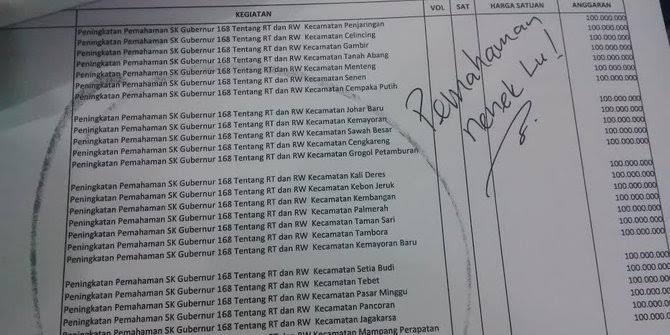 KEGIATAN VOL SAT HARGA SATUAN ANGGARAN
Peningkatan Pemahaman SK Gubernur 168 Tentang RT dan RW Kecamatan Penjaringan 100.000.000
Peningkatan Pemahaman SK Gubernur 168 Tentang RT dan RW Kecamatan Celincing 100.000.000
Peningkatan Pemahaman SK Gubernur 168 Tentang RT dan RW Kecamatan Gambir 100.000.000
Peningkatan Pemahaman SK Gubernur 168 Tentang RT dan RW Kecamatan Tanah Abang 100.000.000
Peningkatan Pemahaman SK Gubernur 168 Tentang RT dan RW Kecamatan Menteng 100.000.000
Peningkatan Pemahaman SK Gubernur 168 Tentang RT dan RW Kecamatan Senen 100.000.000
Peningkatan Pemahaman SK Gubernur 168 Tentang RT dan RW Kecamatan Cempaka Putih
Pemahaman
nenek lu!
Peningkatan Pemahaman SK Gubernur 168 Tentang RT dan RW Kecamatan Johar Baru 100.000.000
Peningkatan Pemahaman SK Gubernur 168 Tentang RT dan RW Kecamatan Kemayoran 100.000.000
Peningkatan Pemahaman SK Gubernur 168 Tentang RT dan RW Kecamatan Sawah Besar 100.000.000
Peningkatan Pemahaman SK Gubernur 168 Tentang RT dan RW Kecamatan Cengkareng 100.000.000
Peningkatan Pemahaman SK Gubernur 168 Tentang RT dan RW Kecamatan Grogol Petamburan 100.000.000
Peningkatan Pemahaman SK Gubernur 168 Tentang RT dan RW Kecamatan Kali Deres 100.000.000
Peningkatan Pemahaman SK Gubernur 168 Tentang RT dan RW Kecamatan Kebon Jeruk 100.000.000
Peningkatan Pemahaman SK Gubernur 168 Tentang RT dan RW Kecamatan Kembangan 100.000.000
Peningkatan Pemahaman SK Gubernur 168 Tentang RT dan RW Kecamatan Palmerah 100.000.000
Peningkatan Pemahaman SK Gubernur 168 Tentang RT dan RW Kecamatan Taman Sari 100.000.000
Peningkatan Pemahaman SK Gubernur 168 Tentang RT dan RW Kecamatan Tambora 100.000.000
Peningkatan Pemahaman SK Gubernur 168 Tentang RT dan RW Kecamatan Kemayoran Baru 100.000.000
Peningkatan Pemahaman SK Gubernur 168 Tentang RT dan RW Kecamatan Setia Budi 100.000.000
Peningkatan Pemahaman SK Gubernur 168 Tentang RT dan RW Kecamatan Tebet 100.000.000
Peningkatan Pemahaman SK Gubernur 168 Tentang RT dan RW Kecamatan Pasar Minggu 100.000.000
Peningkatan Pemahaman SK Gubernur 168 Tentang RT dan RW Kecamatan Pancoran 100.000.000
Peningkatan Pemahaman SK Gubernur 168 Tentang RT dan RW Kecamatan Jagakarsa 100.000.000
168 Tentang RT dan RW Kecamatan Mampang Perapatan